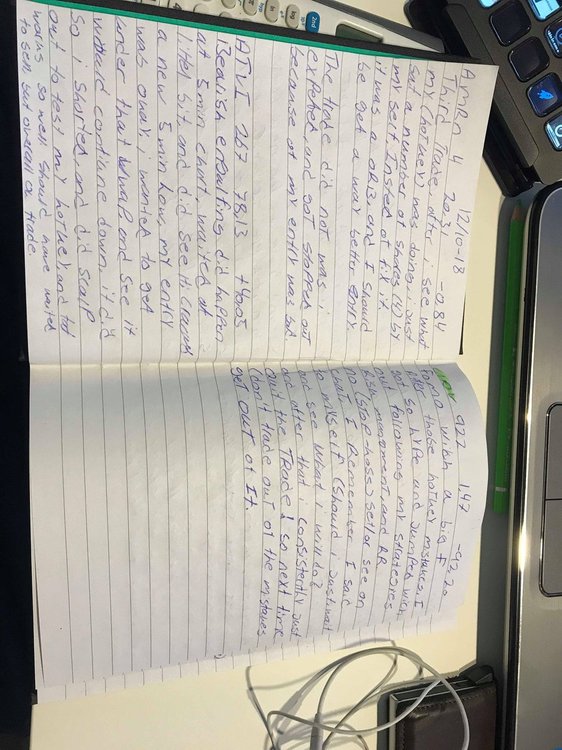 12/10-18
AMRN 4 20.31 -0.84
Third Trade, after i see what
my (hotkey) was doing i just
put a number of shares (4) by
my self insted of fix it
it was a ORB and I should
be get a way better entry.
The trade did not was i
expected and got stopped out
because of my entry was bad
ATVI 267 78.13 +4.05
Bearish engulfing did happen
at 5 min chart, waited at
litel bit and did see it
a new 5 min low, my entry
was okay, i wanted to get
under that VWAP and see it
would continue down it did
So i shorted and did scalp
out to test my hotkey and tht
works so well should have waited
to sell but overall ok trade
922 1.47 -92.20
FOMO with a big F
After those hotkey mistakes. I
got so hype and jumped with
out following my strategies
Risk management and RR
no (stop-loss) set or see on
chart. I Remember I said
to myself (should i just wait
and see what I will do?
and after that i consistently just
out the TRADE! so next time
(don't trade out of the mistakes
get OUT of It.
2nd